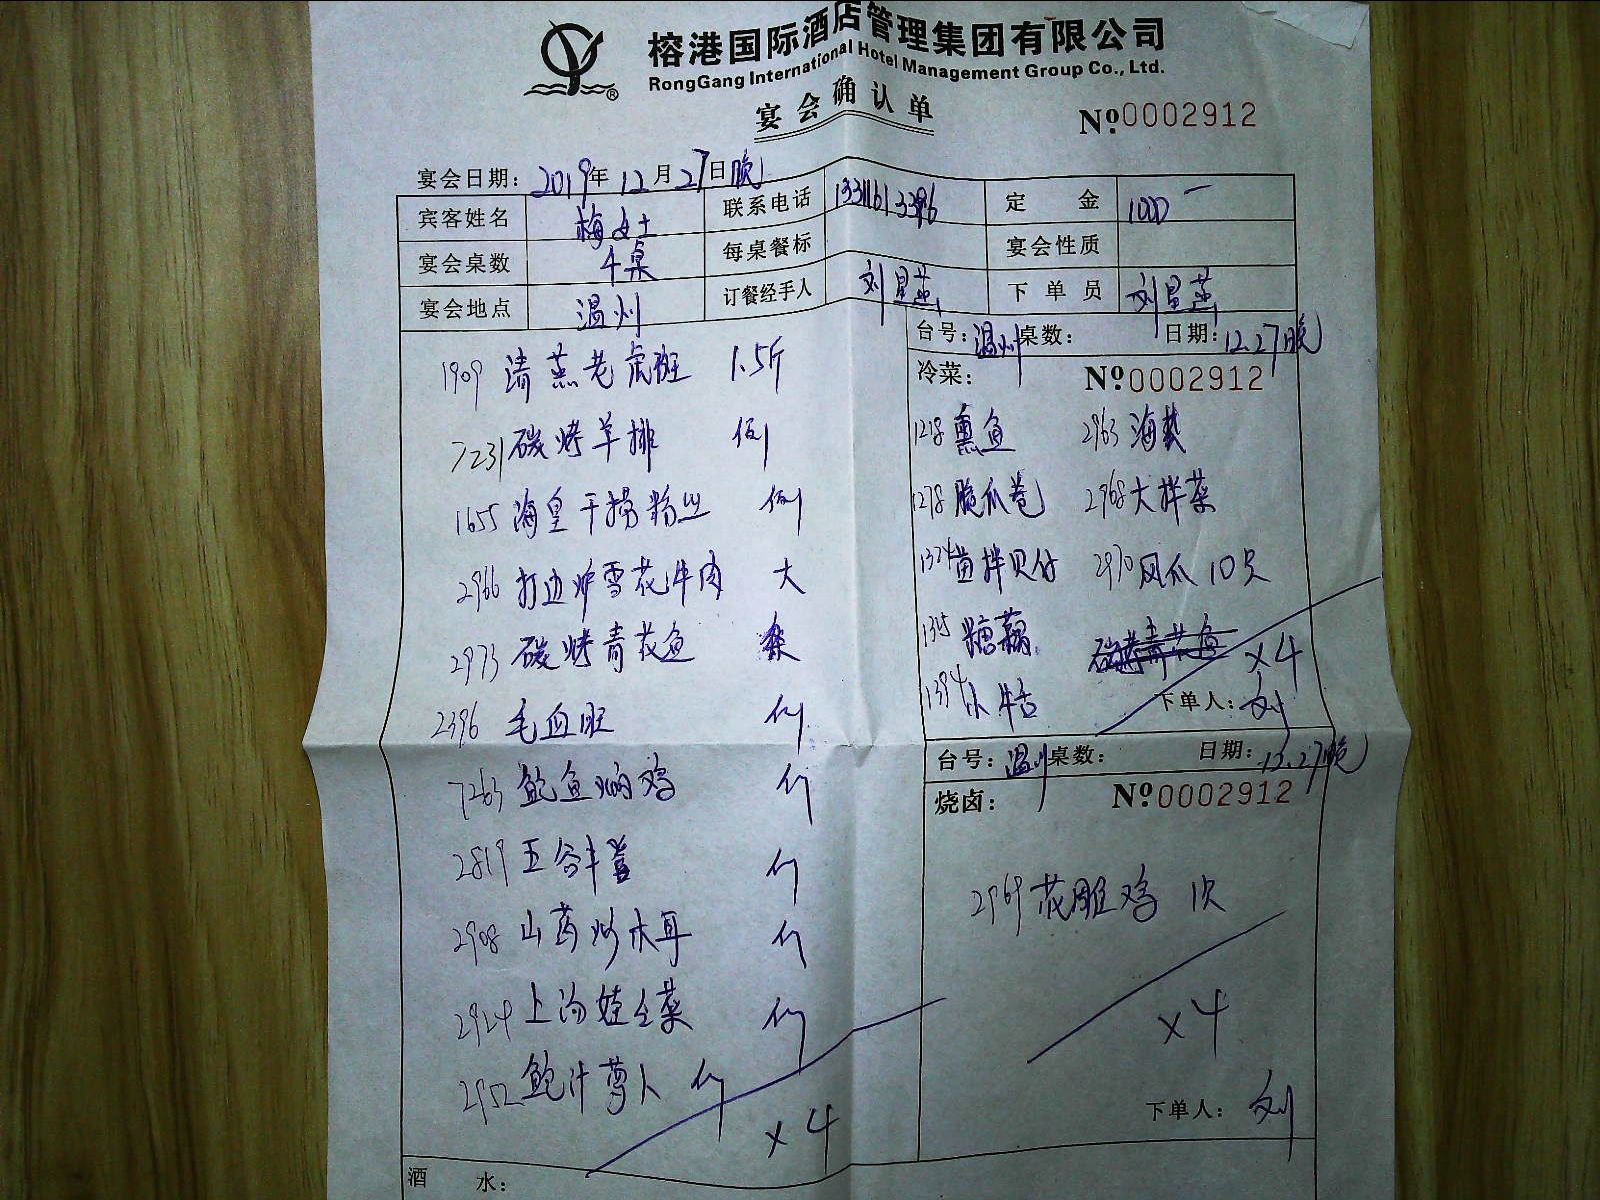 榕港国际酒店管理集团有限公司
RongGang International Hotel Management Group Co., Ltd.
宴会确认单
®
Nº 0002912
宴会日期: 2019年12月27日晚
宾客姓名 梅女士 联系电话 定金 1000
宴会桌数 4桌 每桌餐标 宴会性质
宴会地点 温州 订餐经手人 刘星燕 下单员 刘星燕
1909 清蒸老虎斑 1.5斤
7231 碳烤羊排 例
1655 海皇干捞粉丝 例
2966 打边炉雪花牛肉 大
2973 碳烤青花鱼
2396 毛血旺 例
7263 鲍鱼焖鸡 例
2819 五谷丰登 例
2908 山药炒木耳 例
2924 上汤娃娃菜 例
2952 鲍汁萝卜 例
x4
酒水:
台号: 温州 桌数: 日期: 12.27晚
冷菜: Nº 0002912
1218 熏鱼 2963 海蜇
1278 脆瓜卷 2968 大拌菜
1324 拌贝付 2970 凤爪 10只
1315 糖藕
1394 卜牛舌 x4
下单人: 刘
台号: 温州 桌数: 日期: 12.27晚
烧卤: Nº 0002912
2969 花雕鸡 1只
x4
下单人: 刘